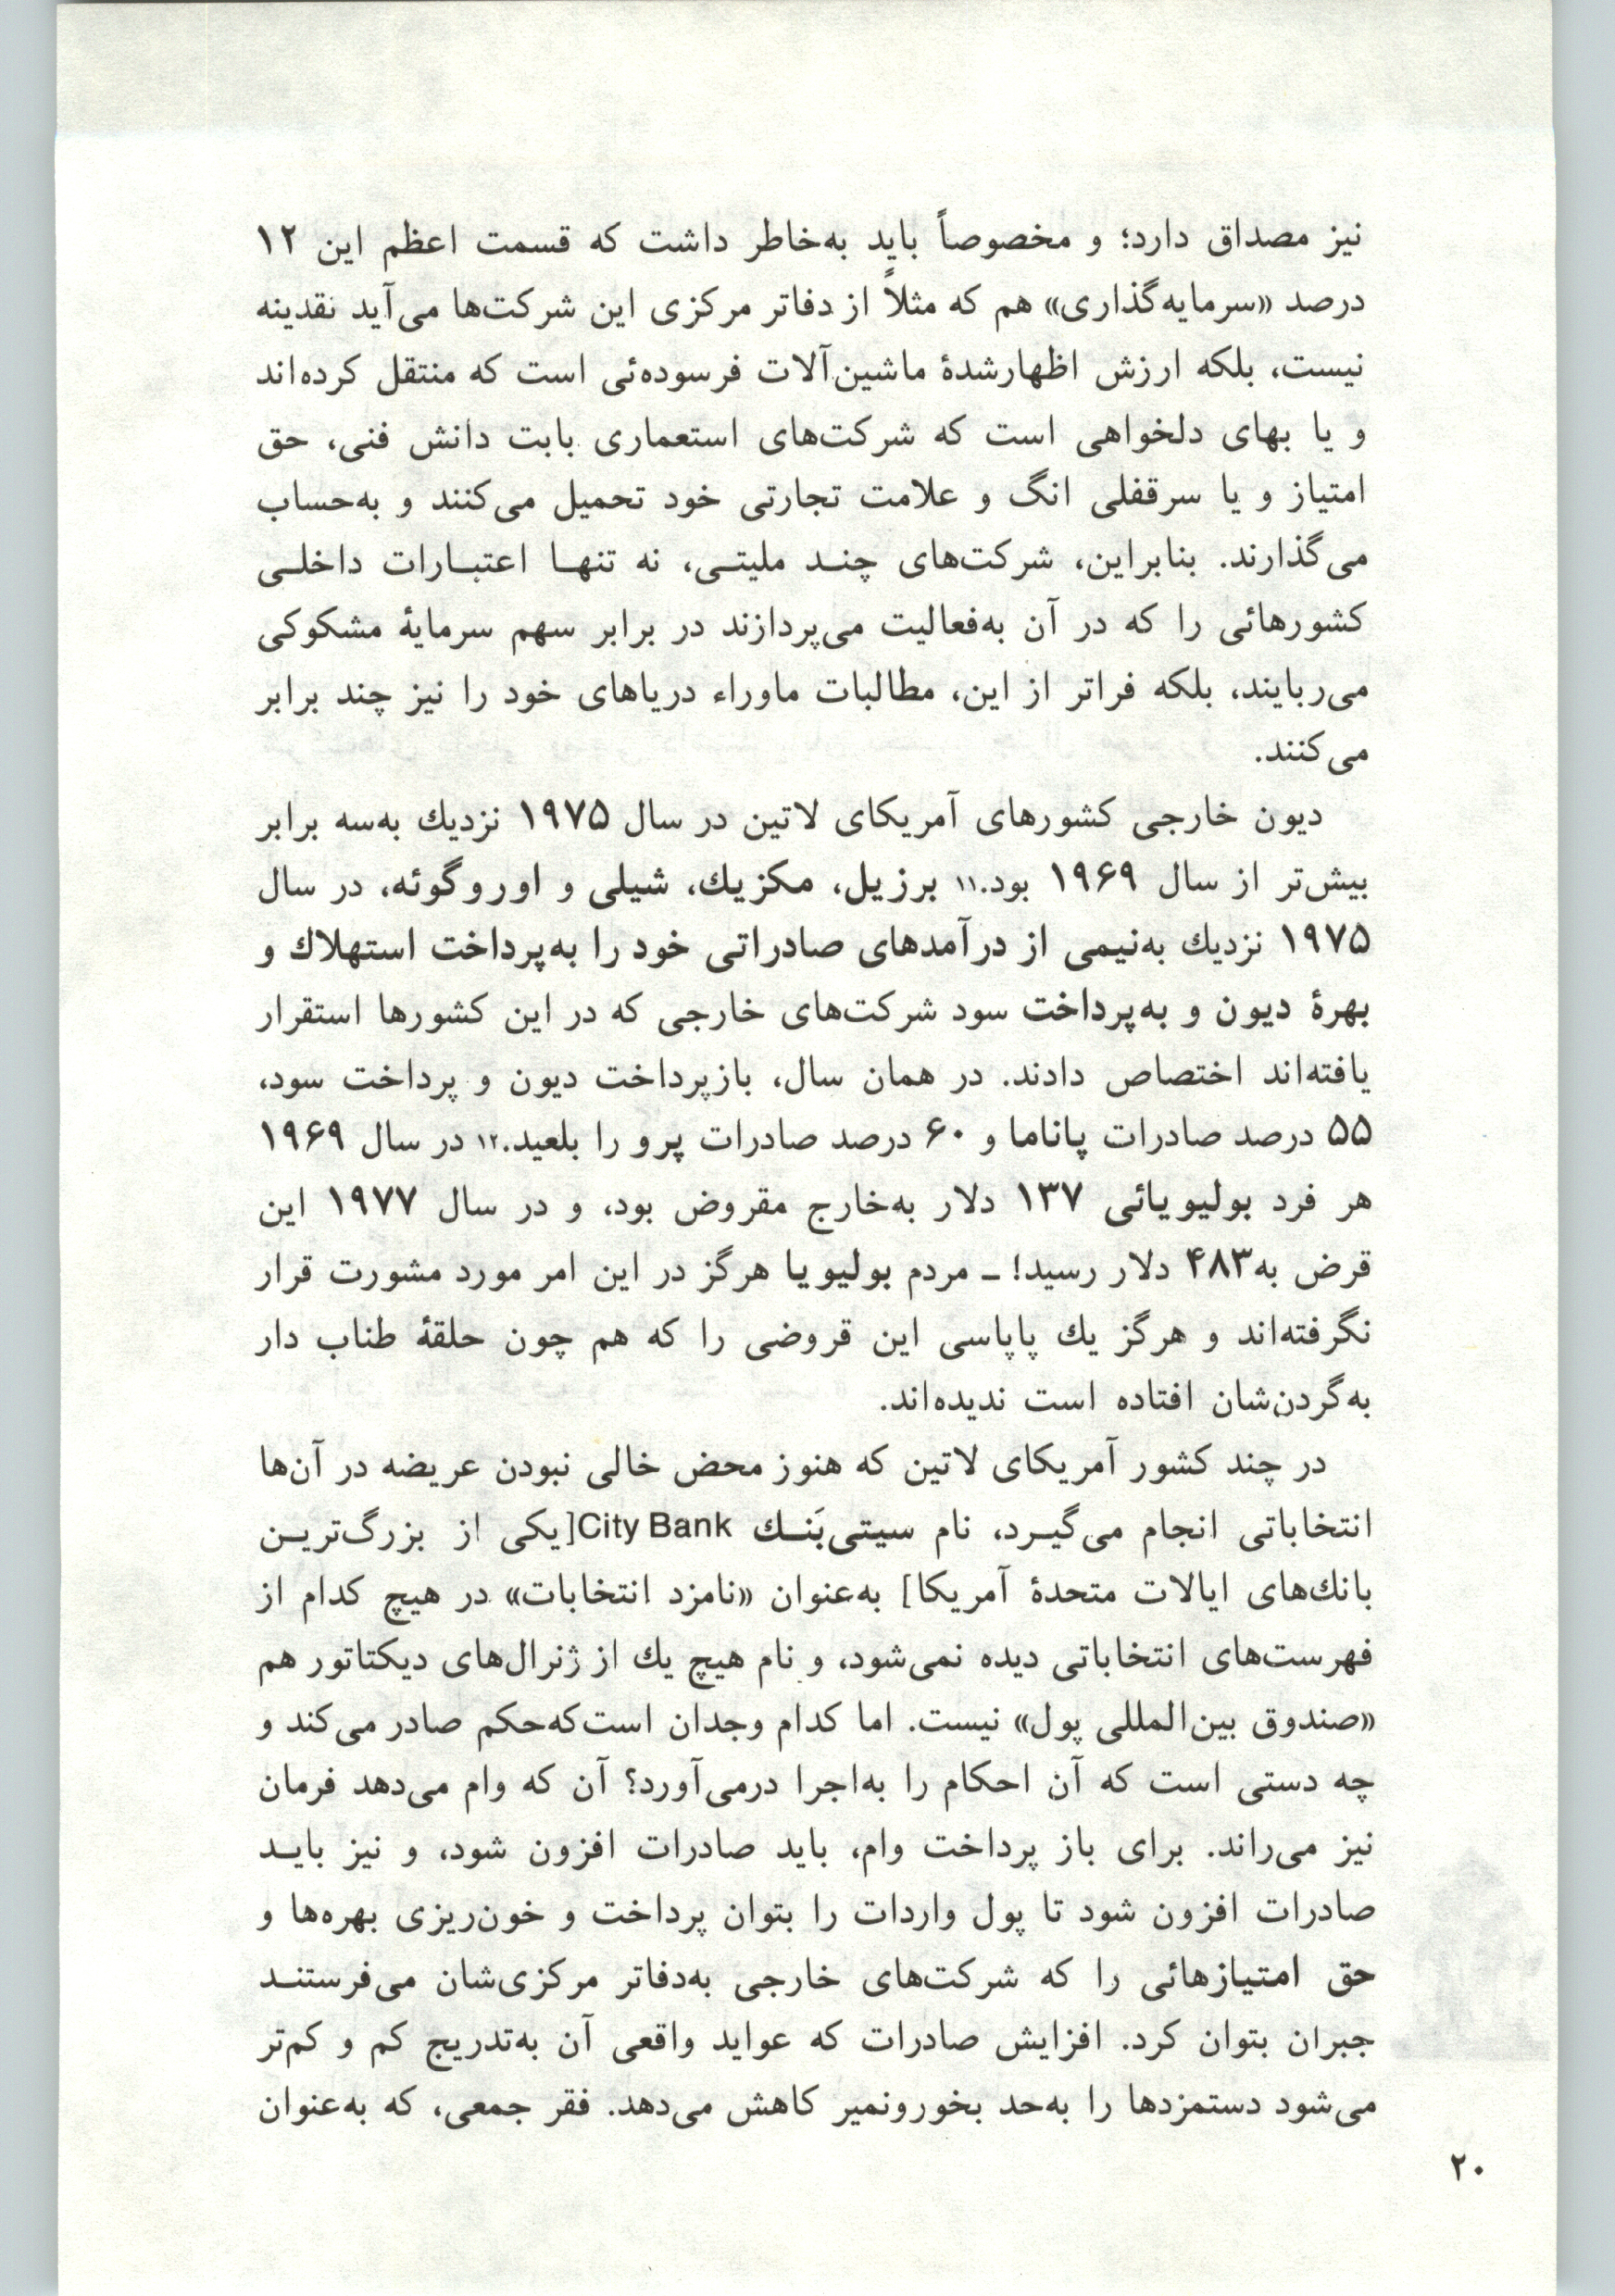 نیز مصداق دارد؛ و مخصوصاً باید به‌خاطر داشت که قسمت اعظم این ۱۲
درصد «سرمایه‌گذاری» هم که مثلاً از دفاتر مرکزی این شرکت‌ها می‌آید نقدینه
نیست، بلکه ارزش اظهارشدهٔ ماشین‌آلات فرسوده‌ئی است که منتقل کرده‌اند
و یا بهای دلخواهی است که شرکت‌های استعماری بابت دانش فنی، حق
امتیاز و یا سرقفلی انگ و علامت تجارتی خود تحمیل می‌کنند و به‌حساب
می‌گذارند. بنابراین، شرکت‌های چنـد ملیتـی، نه تنهـا اعتبـارات داخلـی
کشورهائی را که در آن به‌فعالیت می‌پردازند در برابر سهم سرمایهٔ مشکوکی
می‌ربایند، بلکه فراتر از این، مطالبات ماوراء دریاهای خود را نیز چند برابر
می‌کنند.
دیون خارجی کشورهای آمریکای لاتین در سال ۱۹۷۵ نزدیك به‌سه برابر
بیش‌تر از سال ۱۹۶۹ بود.۱۱ برزیل، مکزیك، شیلی و اوروگوئه، در سال
۱۹۷۵ نزدیك به‌نیمی از درآمدهای صادراتی خود را به‌پرداخت استهلاك و
بهرهٔ دیون و به‌پرداخت سود شرکت‌های خارجی که در این کشورها استقرار
یافته‌اند اختصاص دادند. در همان سال، بازپرداخت دیون و پرداخت سود،
۵۵ درصد صادرات پاناما و ۶۰ درصد صادرات پرو را بلعید.۱۲ در سال ۱۹۶۹
هر فرد بولیویائی ۱۳۷ دلار به‌خارج مقروض بود، و در سال ۱۹۷۷ این
قرض به۴۸۳ دلار رسید! ـ مردم بولیویا هرگز در این امر مورد مشورت قرار
نگرفته‌اند و هرگز یك پاپاسی این قروضی را که هم چون حلقهٔ طناب دار
به‌گردن‌شان افتاده است ندیده‌اند.
در چند کشور آمریکای لاتین که هنوز محض خالی نبودن عریضه در آن‌ها
انتخاباتی انجام می‌گیـرد، نام سیتی‌بَنـك City Bank [یکی از بزرگ‌تریـن
بانك‌های ایالات متحدهٔ آمریکا] به‌عنوان «نامزد انتخابات» در هیچ کدام از
فهرست‌های انتخاباتی دیده نمی‌شود، و نام هیچ یك از ژنرال‌های دیکتاتور هم
«صندوق بین‌المللی پول» نیست. اما کدام وجدان است‌که‌حکم صادر می‌کند و
چه دستی است که آن احکام را به‌اجرا درمی‌آورد؟ آن که وام می‌دهد فرمان
نیز می‌راند. برای باز پرداخت وام، باید صادرات افزون شود، و نیز بایـد
صادرات افزون شود تا پول واردات را بتوان پرداخت و خون‌ریزی بهره‌ها و
حق امتیازهائی را که شرکت‌های خارجی به‌دفاتر مرکزی‌شان می‌فرستنـد
جبران بتوان کرد. افزایش صادرات که عواید واقعی آن به‌تدریج کم و کم‌تر
می‌شود دستمزدها را به‌حد بخورونمیر کاهش می‌دهد. فقر جمعی، که به‌عنوان
۲۰